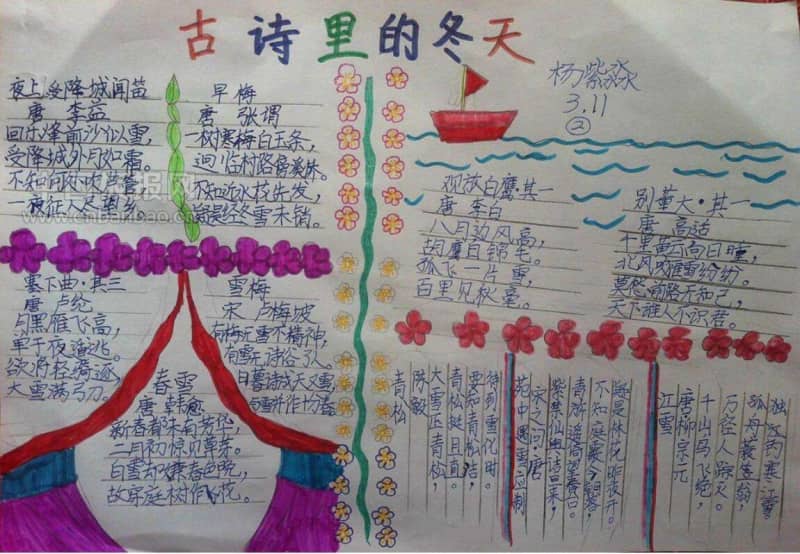 古诗里的冬天
杨紫淼
3.11
②
夜上受降城闻笛
唐 李益
回乐烽前沙似雪,
受降城外月如霜,
不知何处吹芦管,
一夜征人尽望乡
早梅
唐 张谓
一树寒梅白玉条,
迥临村路傍溪珠。
不知近水花先发,
疑是经冬雪未销。
www.cnbanbao.cn
塞下曲·其三
唐 卢纶
月黑雁飞高,
单于夜遁逃。
欲将轻骑逐,
大雪满弓刀。
雪梅
宋 卢梅坡
有梅无雪不精神,
有雪无诗俗了人。
日暮诗成天又雪,
春雪
唐 韩愈
新春都未有芳华,
二月初惊见草芽。
白雪却嫌春色晚,
故穿庭树作飞花。
观放白鹰其一
唐 李白
八月边风高,
胡鹰白锦毛。
孤飞一片雪,
百里见秋毫。
别董大·其一
唐 高适
千里黄云白日曛,
北风吹雁雪纷纷。
莫愁前路无知己,
天下谁人不识君。
青松
陈毅
大雪压青松,
青松挺且直。
要知青松洁,
待到雪化时。
苑中遇雪应制
宋之问 唐
紫禁仙舆诘旦来,
青旂遥倚望春台。
不知庭霰今朝落,
疑是林花昨夜开。
江雪
唐柳宗元
千山鸟飞绝,
万径人踪灭。
孤舟蓑笠翁,
独钓寒江雪。